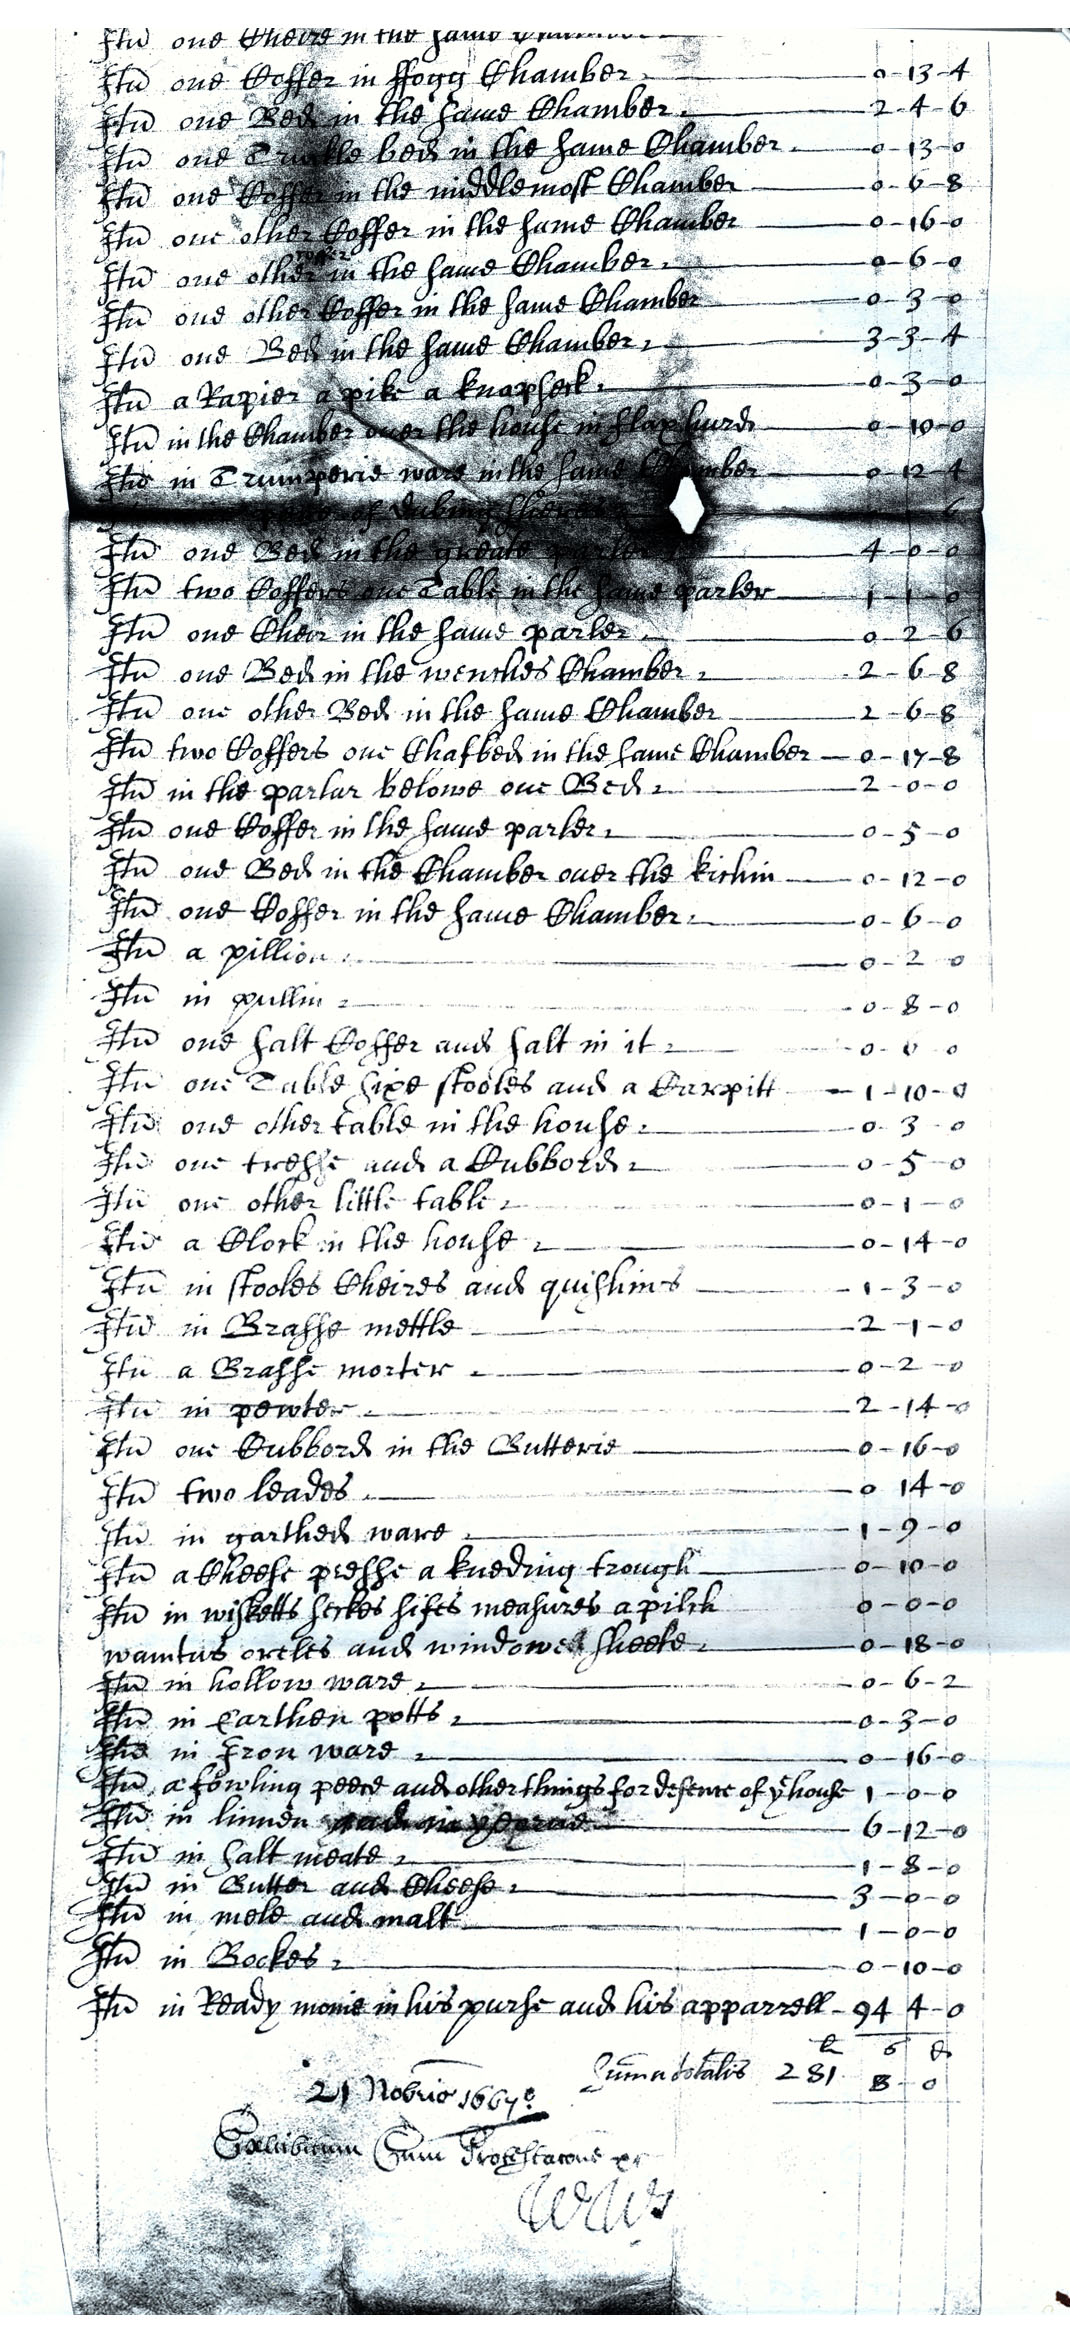 Itū one Cheire in the same Chamber
Itū one Coffer in ffogg Chamber 0-13-4
Itū one Bed in the same Chamber 2-4-6
Itū one Truckle bed in the same Chamber 0-13-0
Itū one Coffer in the middlemost Chamber 0-6-8
Itū one other Coffer in the same Chamber 0-16-0
Itū one other coffer in the same Chamber 0-6-0
Itū one other Coffer in the same Chamber 0-3-0
Itū one Bed in the same Chamber 3-3-4
Itū a Rapier a pike a knapseck 0-3-0
Itū in the Chamber over the house in flax hurds 0-10-0
Itū in Trumperie ware in the same Chamber 0-12-4
of 6
Itū one Bed in the greate parler 4-0-0
Itū two Coffers one Table in the same parler 1-1-0
Itū one Cheir in the same parler 0-2-6
Itū one Bed in the wenches Chamber 2-6-8
Itū one other Bed in the same Chamber 2-6-8
Itū two Coffers one Chafbed in the same Chamber 0-17-8
Itū in the parlar belowe one Bed 2-0-0
Itū one Coffer in the same parler 0-5-0
Itū one Bed in the Chamber over the kichin 0-12-0
Itū one Coffer in the same Chamber 0-6-0
Itū a pillion 0-2-0
Itū in pullin 0-8-0
Itū one salt Coffer and salt in it 0-6-0
Itū one Table sixe stooles and a Carpitt 1-10-0
Itū one other table in the house 0-3-0
Itū one tresse and a Cubbord 0-5-0
Itū one other little table 0-1-0
Itū a Clock in the house 0-14-0
Itū in stooles Cheires and quishins 1-3-0
Itū in Brasse mettle 2-1-0
Itū a Brasse morter 0-2-0
Itū in pewter 2-14-0
Itū one Cubbord in the Butterie 0-16-0
Itū two leades 0-14-0
Itū in garthed ware 1-9-0
Itū a Cheese presse a kneding trough 0-10-0
Itū in wisketts seckes sifes measures a pilch 0-0-0
wantus and windowe sheete 0-18-0
Itū in hollow ware 0-6-2
Itū in earthen potts 0-3-0
Itū in Iron ware 0-16-0
Itū a fowling peece and other things for defence of yᵉ house 1-0-0
Itū in linnen 6-12-0
Itū in salt meate 1-8-0
Itū in Butter and Cheese 3-0-0
Itū in mele and malt 1-0-0
Itū in Bookes 0-10-0
Itū in Ready monie in his purse and his apparrell 94 4-0
li s d
Sum̄a totalis 281 8-0
21 Nobris 1667
Exhibitum Cum Protestacone